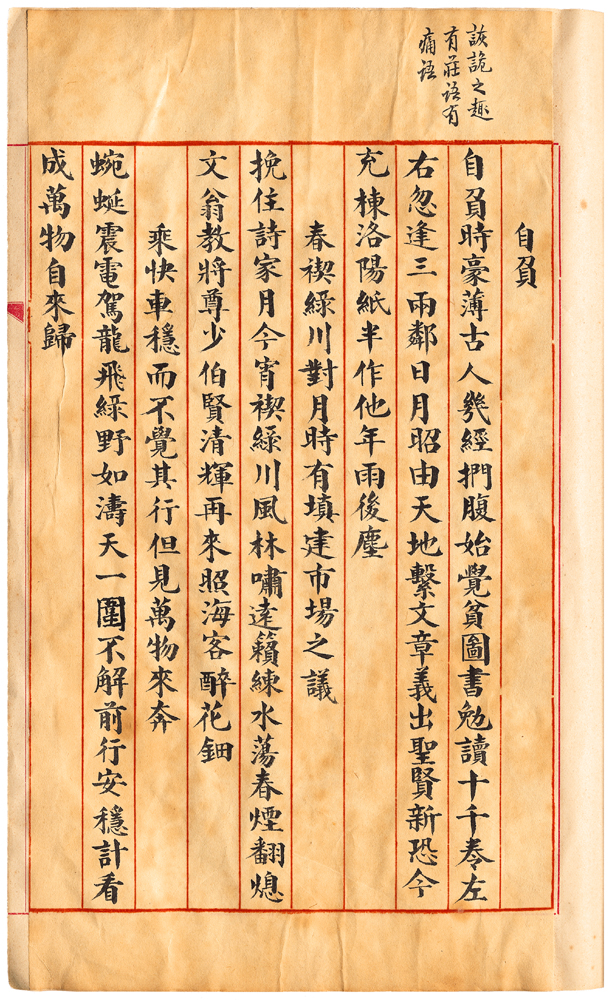 詼詭之趣
有莊語有
痛語
自負
自負時豪薄古人幾經捫腹始覺貧圖書勉讀十千卷左
右忽逢三兩鄰日月昭由天地繫文章義出聖賢新恐今
充棟洛陽紙半作他年雨後塵
春禊綠川對月時有填建市場之議
挽住詩家月今宵禊綠川風林嘯遠籟練水蕩春煙翻熄
文翁教將尊少伯賢清輝再來照海客醉花鈿
乘快車穩而不覺其行但見萬物來奔
蜿蜒震電駕龍飛綠野如濤天一圍不解前行安穩計看
成萬物自來歸